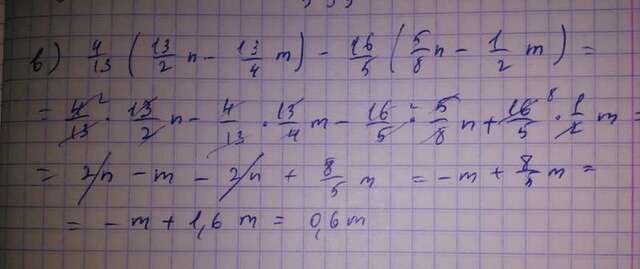 в) 4/13 (13/2 n - 13/4 m) - 16/5 (5/8 n - 1/2 m) =
= 4/13 · 13/2 n - 4/13 · 13/4 m - 16/5 · 5/8 n + 16/5 · 1/2 m =
= 2n - m - 2n + 8/5 m = -m + 8/5 m =
= -m + 1,6 m = 0,6 m